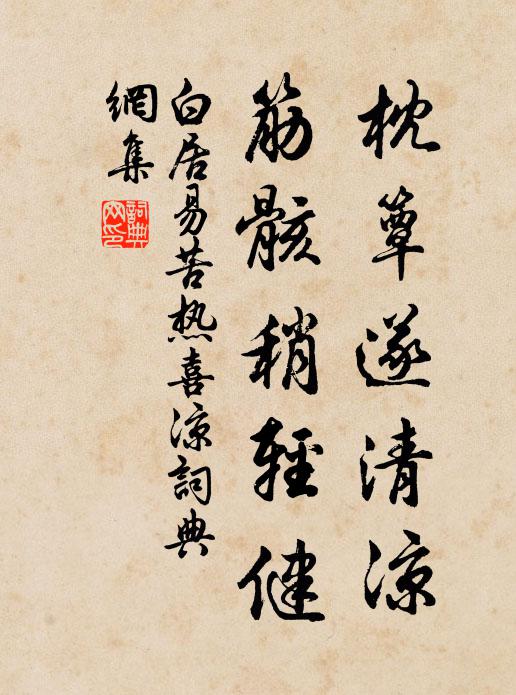 枕簟遂清凉
筋骸稍輕健
白居易苦热喜凉詞典
網集
詞典
网印